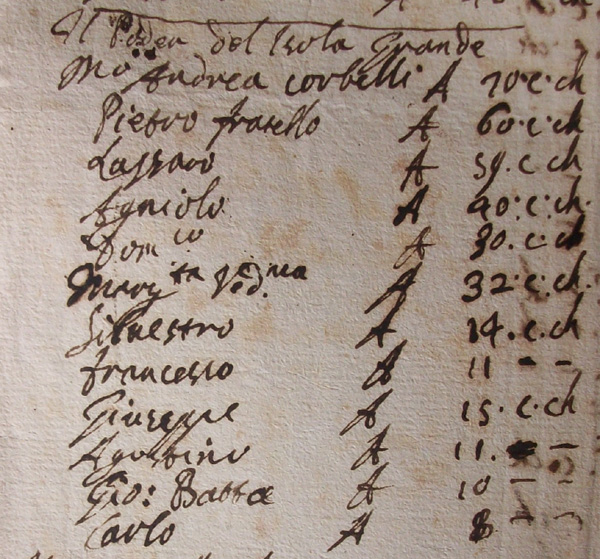 Il Poder del Isola Grande
Mo Andrea Corbelli A 70.c.ch
Pietro fratello A 60.c.ch
Lazzaro A 59.c.ch
Agniolo A 40.c.ch.
Domco A 30.c.ch
Margta Ved.ua A 32.c.ch.
Siluestro A 14.c.ch
francesco A 11 - -
Giuseppe A 15.c.ch
Agostino A 11. - -
Gio: Batta A 10 - -
Carlo A 8 - -